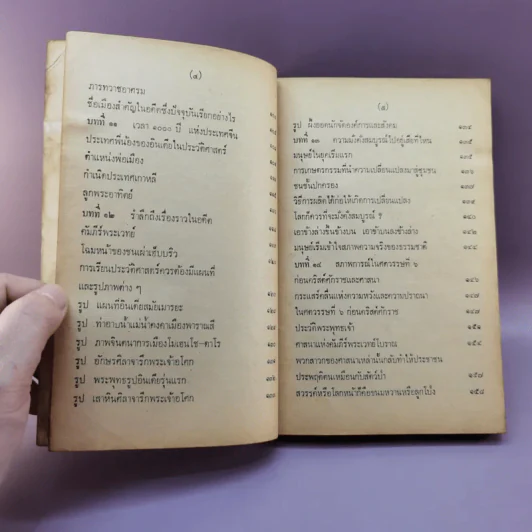 (๔)
ภารทวาชอาศรม
ชื่อเมืองสำคัญในอดีตซึ่งปัจจุบันเรียกอย่างไร
บทที่ ๑๑ เวลา ๑๐๐๐ ปี แห่งประเทศจีน
ประเทศพี่น้องของอินเดียในประวัติศาสตร์
ตำแหน่งพ่อเมือง
กำเนิดประเทศเกาหลี
ลูกพระอาทิตย์
บทที่ ๑๒ รำลึกถึงเรื่องราวในอดีต
คัมภีร์พระเวทย์
โฉมหน้าของชนเผ่าเก็บบริว
การเรียนประวัติศาสตร์ควรต้องมีแผนที่
และรูปภาพต่าง ๆ
รูป แผนที่อินเดียสมัยเมารยะ
รูป ท่าอาบน้ำแม่น้ำคงคาเมืองพาราณสี
รูป ภาพจินตนาการเมืองโมเฮนโช-ดาโร
รูป อักษรศิลาจารึกพระเจ้าอโศก
รูป พระพุทธรูปอินเดียรุ่นแรก
รูป เสาหินศิลาจารึกพระเจ้าอโศก
(๕)
รูป ผังยอดนักจัดองค์การและสังคม ๑๓๔
บทที่ ๑๓ ความมั่งคั่งสมบูรณ์ไปอยู่เสียที่ไหน ๑๓๕
มนุษย์ในยุคเริ่มแรก ๑๓๕
การเกษตรกรรมที่นำความเปลี่ยนแปลงมาสู่ชุมชน ๑๓๖
ชนชั้นปกครอง ๑๓๗
วิธีการผลิตได้ก่อให้เกิดการเปลี่ยนแปลง
โลกก็ควรที่จะมั่งคั่งสมบูรณ์ ? ๑๔๑
เอาข้างล่างขึ้นข้างบน เอาข้างบนลงข้างล่าง
มนุษย์เริ่มเข้าใจสภาพความจริงของธรรมชาติ ๑๔๔
บทที่ ๑๔ สภาพการณ์ในศตวรรษที่ ๖
ก่อนคริสต์ศักราชและศาสนา ๑๔๖
กระแสร์คลื่นแห่งความหวังและความปราถนา ๑๔๗
ในศตวรรษที่ ๖ ก่อนคริสต์ศักราช ๑๔๗
ประวัติพระพุทธเจ้า ๑๕๑
ศาสนาแห่งคัมภีร์พระเวทย์โบราณ ๑๕๔
พวกสาวกของศาสนาเหล่านั้นกลับทำให้ประชาชน
ประพฤติตนเหมือนกับสัตว์ป่า ๑๕๗
สวรรค์หรือโลกหน้าก็คือขนมหวานหรือลูกโป่ง ๑๕๘